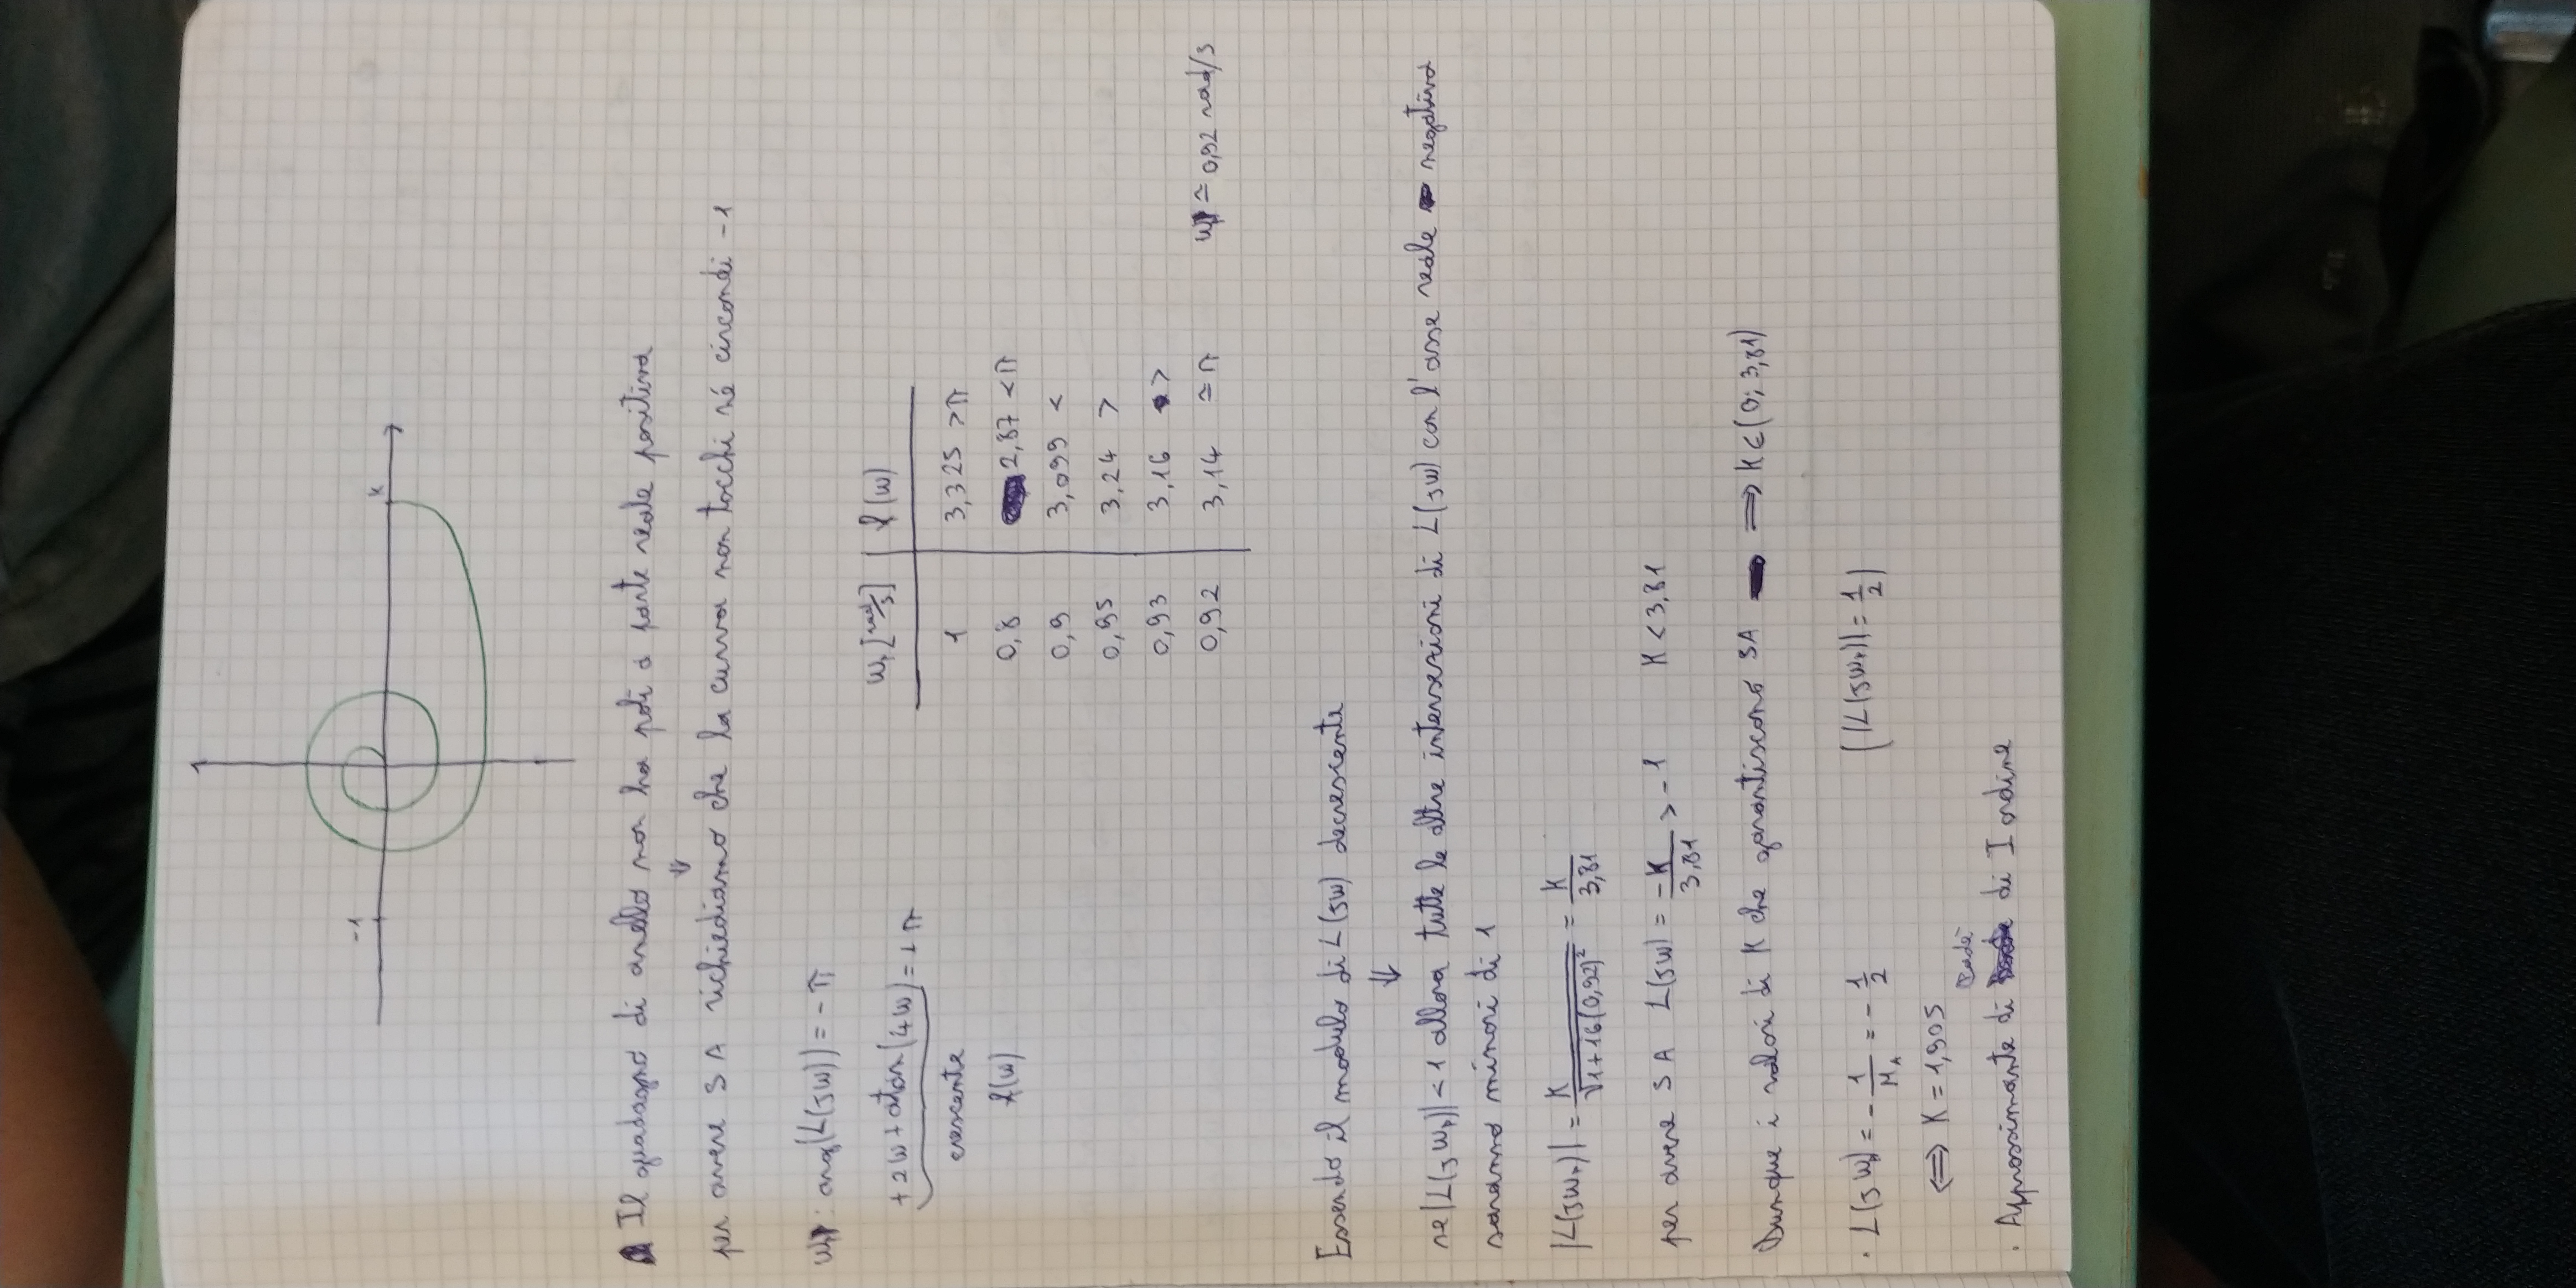 -1
K
Il guadagno di anello non ha poli a parte reale positiva
⇓
per avere SA richiediamo che la curva non tocchi né circondi -1
ωp: arg(L(jω)) = -π
+2ω + atan(4ω) = +π
crescente
f(ω)
ωp [rad/s] | f(ω)
1 | 3,325 >π
0,8 | 2,87 <π
0,9 | 3,099 <
0,95 | 3,24 >
0,93 | 3,16 >
0,92 | 3,14 ≃ π
ωp ≃ 0,92 rad/s
Essendo il modulo di L(jω) decrescente
⇓
se |L(jωp)| < 1 allora tutte le altre intersezioni di L(jω) con l'asse reale negativo
saranno minori di 1
|L(jωp)| = K/√(1+16(0,92)²) = K/3,81
per avere SA L(jω) = -K/3,81 > -1 K < 3,81
Dunque i valori di K che garantiscono SA ⟹ K ∈ (0; 3,81)
· L(jωp) = -1/MA = -1/2 (|L(jωp)| = 1/2)
⟺ K = 1,905
· Approssimante di Padè di I ordine